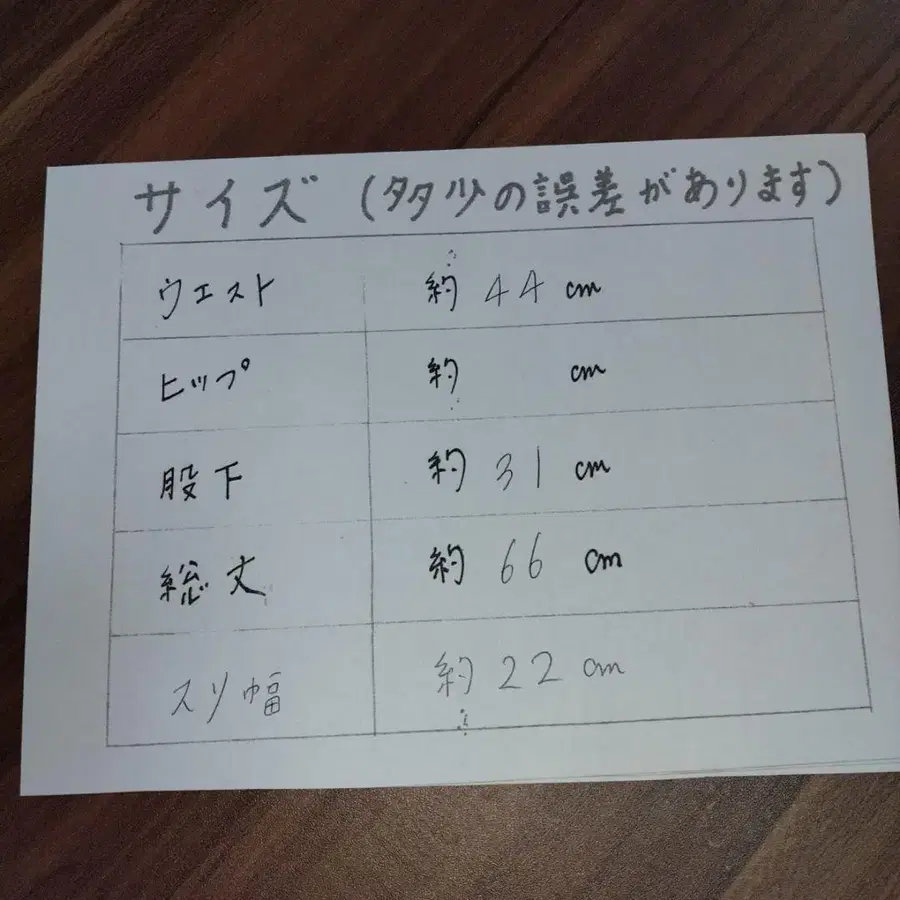 サイズ (多少の誤差があります)
ウエスト 約 44 cm
ヒップ 約 cm
股下 約 31 cm
総丈 約 66 cm
スソ幅 約 22 cm